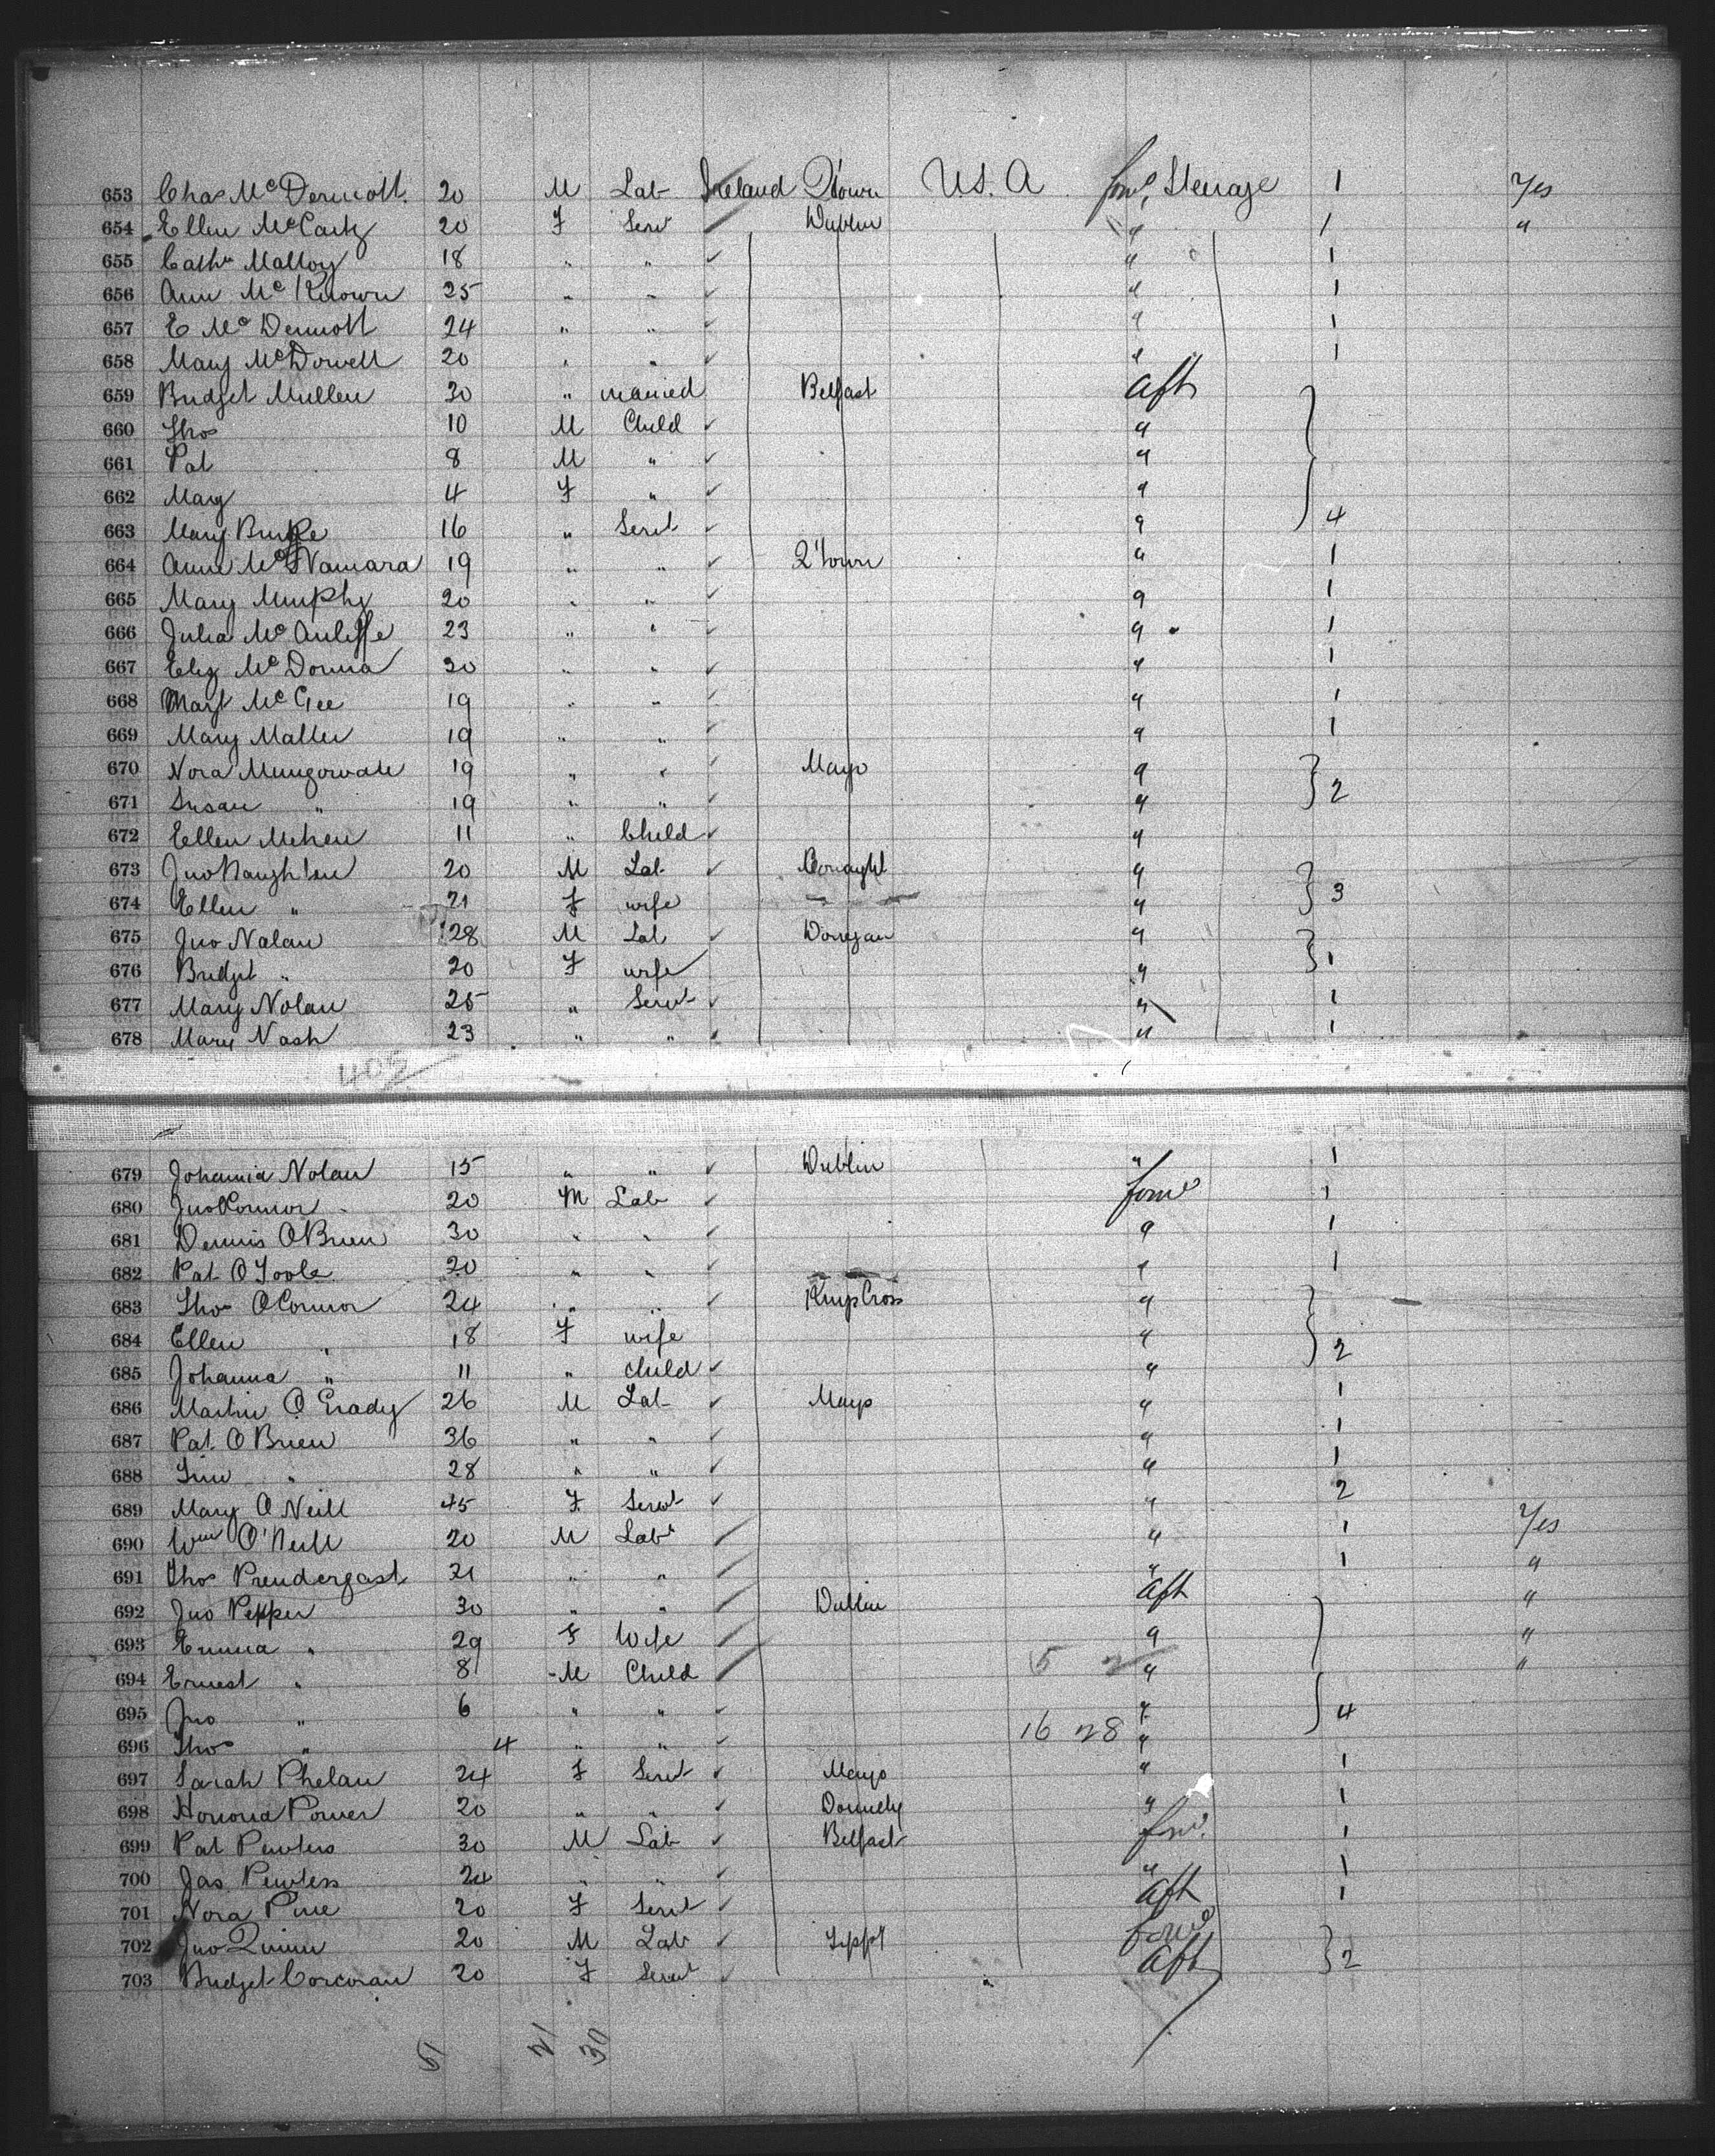 653 Chas McDermott 20 M Lab Ireland Qtown U.S.A ford Steerage 1 Yes
654 Ellen McCarty 20 F Serv Dublin " 1 "
655 Cathn Malloy 18 " " " 1
656 Ann McKeown 25 " " " 1
657 E McDermott 24 " " " 1
658 Mary McDowell 20 " " " 1
659 Bridget Mullen 30 " married Belfast Aft
660 Thos 10 M Child "
661 Pat 8 M " "
662 Mary 4 F " " 4
663 Mary Burke 16 " Servt "
664 Anne McNamara 19 " " Q'town " 1
665 Mary Murphy 20 " " " 1
666 Julia McAuliffe 23 " " " 1
667 Eliz McDonna 20 " " " 1
668 Margt McGee 19 " " " 1
669 Mary Maller 19 " " " 1
670 Nora 19 " " Mayo "
671 Susan " 19 " " " 2
672 Ellen Mehen 11 " Child "
673 Jno Naughten 20 M Lab "
674 Ellen " 21 F wife " 3
675 Jno Nalan 28 M Lab "
676 Bridget " 20 F wife " 1
677 Mary Nolan 25 " Servt " 1
678 Mary Nash 23 " " " 1
402
679 Johanna Nolan 15 " " Dublin " 1
680 Jno OConnor 20 M Lab ford 1
681 Dennis OBrien 30 " " " 1
682 Pat OToole 20 " " " 1
683 Thos OConnor 24 " " KingsCross "
684 Ellen " 18 F wife " 2
685 Johanna " 11 " child "
686 Martin OGrady 26 M Lab Mayo " 1
687 Pat OBrien 36 " " " 1
688 Tim " 28 " " " 1
689 Mary ONeill 45 F Servt " 2
690 Wm O'Neill 20 M Labr " 1 Yes
691 Thos Prendergast 21 " " " 1 "
692 Jno Pepper 30 " " Dublin Aft "
693 Emma " 29 F Wife " "
694 Ernest " 8 M Child 5 2 " "
695 Jno " 6 " " " 4
696 Thos " 4 " " 16 28 "
697 Sarah Phelan 24 F Servt Mayo " 1
698 Honora Power 20 " " " 1
699 Pat Pewters 30 M Lab Belfast ford 1
700 Jas Pewters 24 " " " 1
701 Nora Pine 20 F Servt Aft 1
702 Jno Quinn 20 M Lab Tippy ford
703 Bridget Corcoran 20 F Servt Aft 2
51 21 30